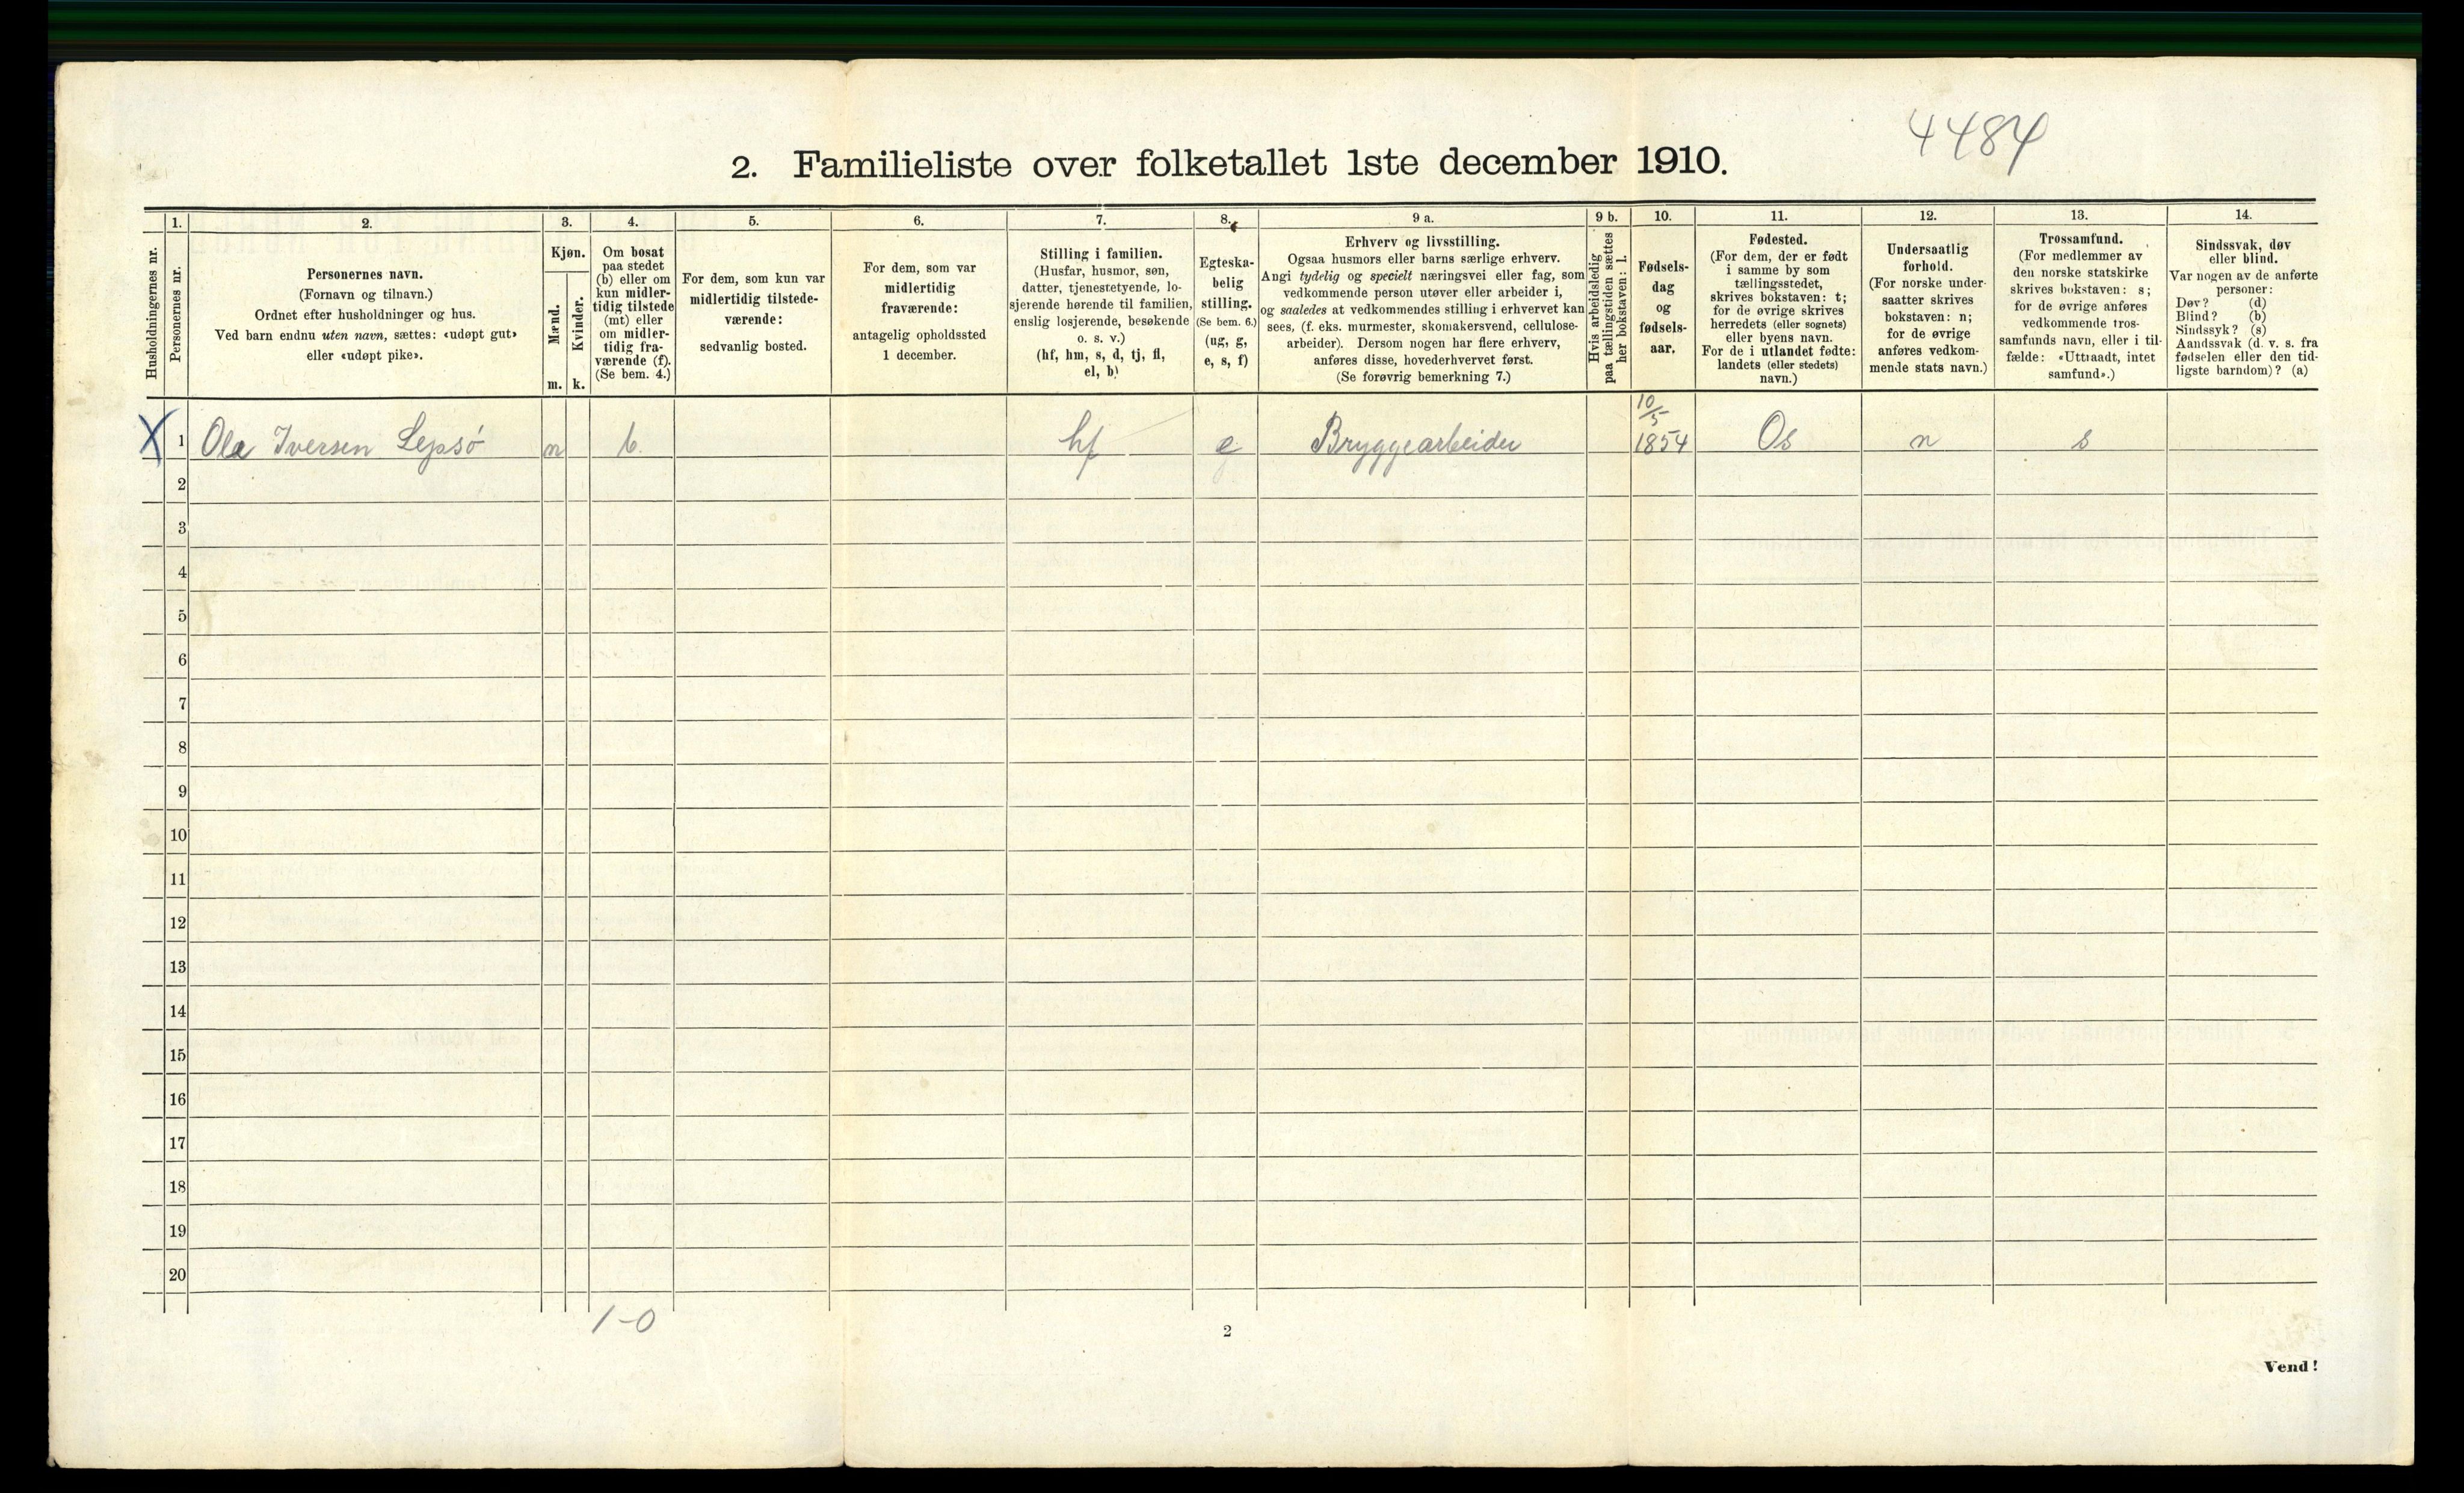 4484
2. Familieliste over folketallet 1ste december 1910.
Husholdningernes nr.
1.
Personernes nr.
2.
Personernes navn.
(Fornavn og tilnavn.)
Ordnet efter husholdninger og hus.
Ved barn endnu uten navn, sættes: «udøpt gut»
eller «udøpt pike».
3.
Kjøn.
Mænd.
Kvinder.
m.
k.
4.
Om bosat
paa stedet
(b) eller om
kun midler-
tidig tilstede
(mt) eller
om midler-
tidig fra-
værende (f).
(Se bem. 4.)
5.
For dem, som kun var
midlertidig tilstede-
værende:
sedvanlig bosted.
6.
For dem, som var
midlertidig
fraværende:
antagelig opholdssted
1 december.
7.
Stilling i familien.
(Husfar, husmor, søn,
datter, tjenestetyende, lo-
sjerende hørende til familien,
enslig losjerende, besøkende
o. s. v.)
(hf, hm, s, d, tj, fl,
el, b)
8.
Egteska-
belig
stilling.
(Se bem. 6.)
(ug, g,
e, s, f)
9 a.
Erhverv og livsstilling.
Ogsaa husmors eller barns særlige erhverv.
Angi tydelig og specielt næringsvei eller fag, som
vedkommende person utøver eller arbeider i,
og saaledes at vedkommendes stilling i erhvervet kan
sees, (f. eks. murmester, skomakersvend, cellulose-
arbeider). Dersom nogen har flere erhverv,
anføres disse, hovederhvervet først.
(Se forøvrig bemerkning 7.)
9 b.
Hvis arbeidsledig
paa tællingstiden sættes
her bokstaven: l.
10.
Fødsels-
dag
og
fødsels-
aar.
11.
Fødested.
(For dem, der er født
i samme by som
tællingsstedet,
skrives bokstaven: t;
for de øvrige skrives
herredets (eller sognets)
eller byens navn.
For de i utlandet fødte:
landets (eller stedets)
navn.)
12.
Undersaatlig
forhold.
(For norske under-
saatter skrives
bokstaven: n;
for de øvrige
anføres vedkom-
mende stats navn.)
13.
Trossamfund.
(For medlemmer av
den norske statskirke
skrives bokstaven: s;
for de øvrige anføres
vedkommende tros-
samfunds navn, eller i til-
fælde: «Uttraadt, intet
samfund».)
14.
Sindssvak, døv
eller blind.
Var nogen av de anførte
personer:
Døv? (d)
Blind? (b)
Sindssyk? (s)
Aandssvak (d. v. s. fra
fødselen eller den tid-
ligste barndom)? (a)
X 1 Ole Iversen Lepsö m b hf e Bryggearbeider 10/5 1854 Os n s
2
3
4
5
6
7
8
9
10
11
12
13
14
15
16
17
18
19
20
1-0
2
Vend!